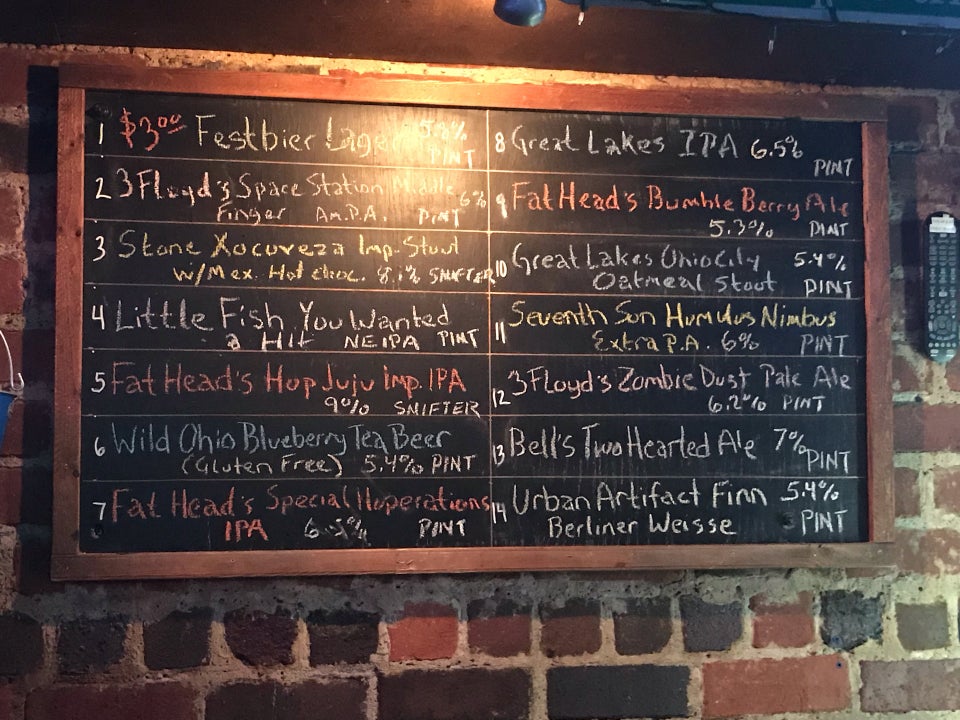 1 $3.00 Festbier Lager 5.8%
PINT
2 3 Floyd's Space Station Middle
Finger Am.P.A. 6% PINT
3 Stone Xocoveza Imp. Stout
w/Mex. Hot choc. 8.1% SNIFTER
4 Little Fish You Wanted
a Hit NEIPA PINT
5 Fat Head's Hop JuJu Imp. IPA
9% SNIFTER
6 Wild Ohio Blueberry Tea Beer
(Gluten Free) 5.4% PINT
7 Fat Head's Special Hoperations
IPA PINT
8 Great Lakes IPA 6.5%
PINT
9 Fat Head's Bumble Berry Ale
5.3% PINT
10 Great Lakes Ohio City 5.4%
Oatmeal Stout PINT
11 Seventh Son Humulus Nimbus
Extra P.A. 6% PINT
12 3 Floyd's Zombie Dust Pale Ale
6.2% PINT
13 Bell's Two Hearted Ale 7%
PINT
14 Urban Artifact Finn 5.4%
Berliner Weisse PINT